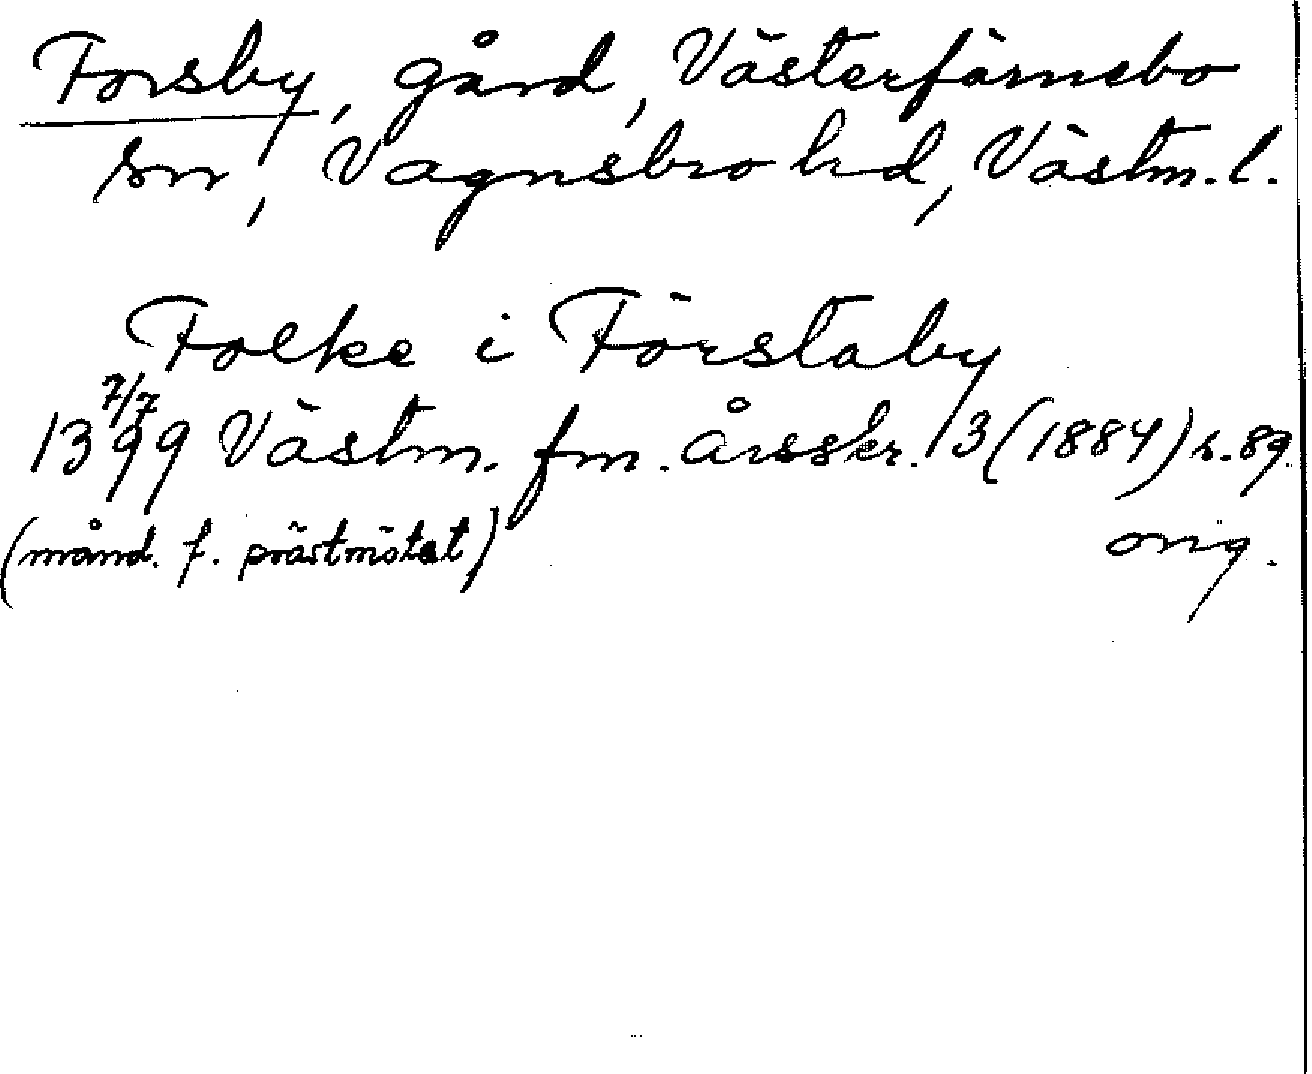 Forsby, gård, Västerfärnebo
sn, Vagnsbro hd, Västm. l.
Folke i Förstaby
7/7
1399 Västm. fm. årsskr. 3 (1884) s. 89.
(månd. f. prästmötet) orig.